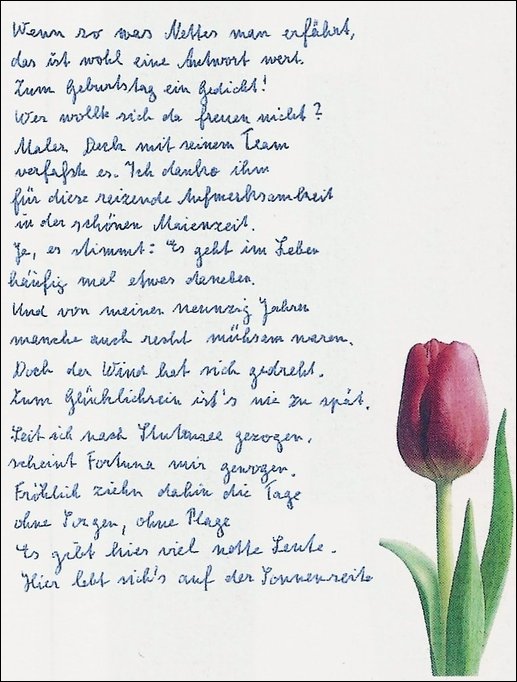 Wenn so was Nettes man erfährt,
das ist wohl eine Antwort wert.
Zum Geburtstag ein Gedicht!
Wer wollte sich da freuen nicht?
Maler Deck mit seinem Team
verfaßte es. Ich danke ihm
für diese reizende Aufmerksamkeit
in der schönen Maienzeit.
Ja, es stimmt: Es geht im Leben
häufig mal etwas daneben.
Und von meinen neunzig Jahren
manche auch recht mühsam waren.
Doch der Wind hat sich gedreht.
Zum Glücklichsein ist's nie zu spät.
Seit ich nach Stutensee gezogen,
scheint Fortuna mir gewogen.
Fröhlich ziehn dahin die Tage
ohne Sorgen, ohne Plage
Es gibt hier viel nette Leute.
Hier lebt sich's auf der Sonnenseite